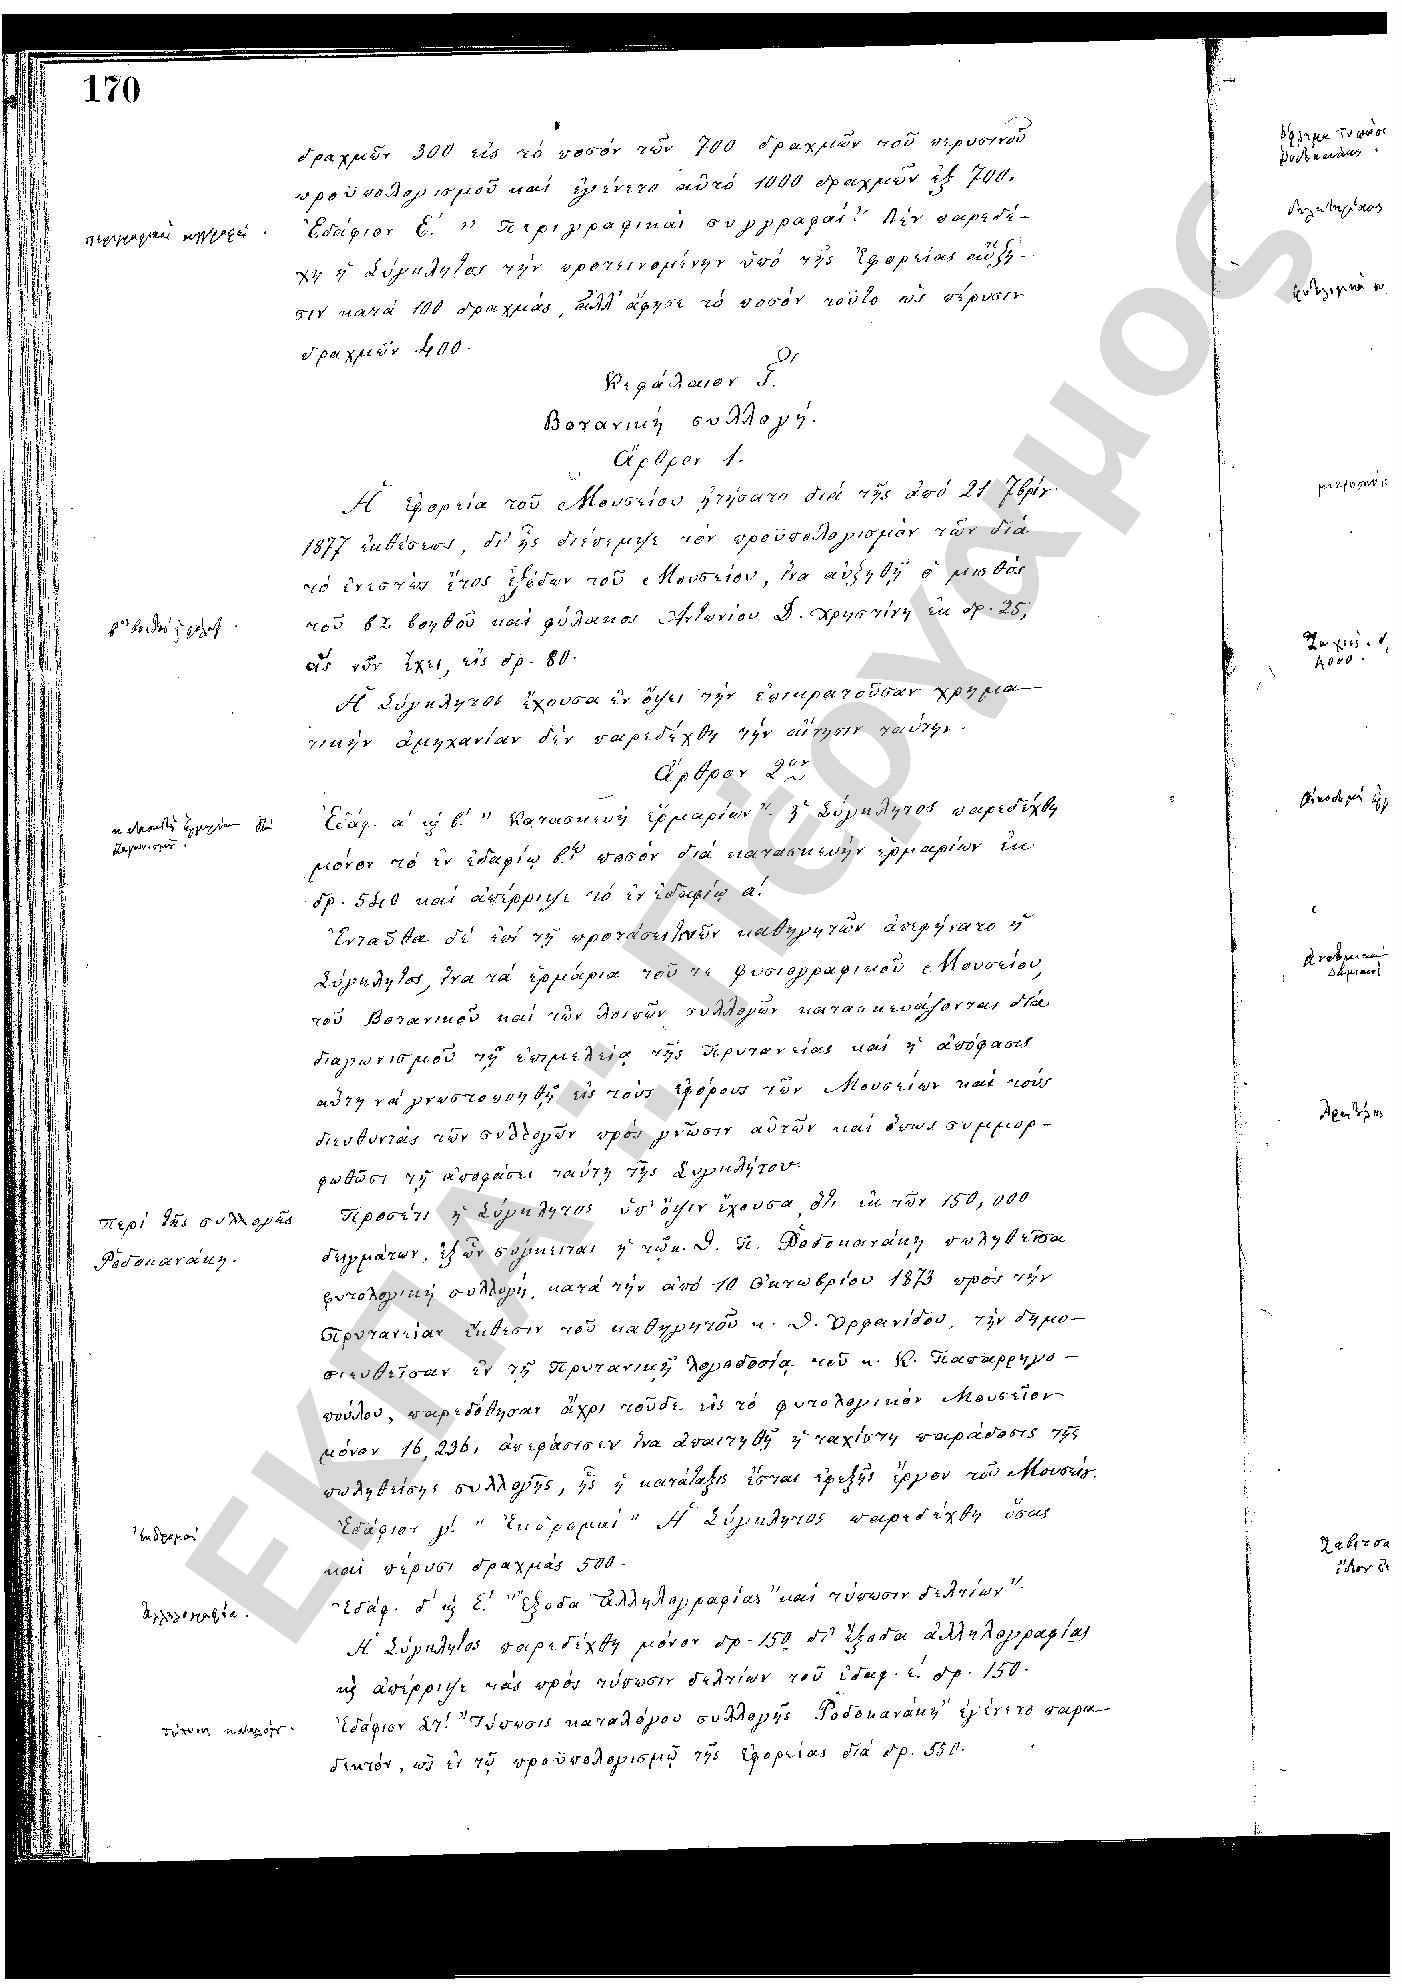 170
δραχμῶν 300 εἰς τό ποσόν τῶν 700 δραχμῶν τοῦ περυσινοῦ
προϋπολογισμοῦ καί ἐγένετο αὐτό 1000 δραχμῶν ἐξ 700.
περιγραφικαί συγγραφαί .
Ἐδάφιον Ε΄. " Περιγραφικαί συγγραφαί" Δέν παρεδέ-
χθη ἡ Σύγκλητος τήν προτεινομένην ὑπό τῆς Ἐφορείας αὔξη-
σιν κατά 100 δραχμάς, ἀλλ' ἀφῆσε τό ποσόν τοῦτο ὡς πέρυσιν
δραχμῶν 400.
Κεφάλαιον Γ΄.
Βοτανική συλλογή.
Ἄρθρον 1.
Ἡ Ἐφορεία τοῦ Μουσείου ᾐτήσατο διά τῆς ἀπό 21 7βρίου
1877 ἐκθέσεως, δι' ἧς διέπεμψε τόν προϋπολογισμόν τῶν διά
τό ἐνεστώς ἔτος ἐξόδων τοῦ Μουσείου, ἵνα αὐξηθῇ ὁ μισθός
τοῦ βου βοηθοῦ καί φύλακος Ἀντωνίου Δ. Χρηστίνη ἐκ δρ. 25,
ἅς νῦν ἔχει, εἰς δρ. 80.
Ἡ Σύγκλητος ἔχουσα ἐν ὄψει τήν ἐπικρατοῦσαν χρημα-
τικήν ἀμηχανίαν δέν παρεδέχθη τήν αἴτησιν ταύτην.
Ἄρθρον 2ον
Ἐδάφ. α΄ κ β΄. " Κατασκευή ἑρμαρίων". ἡ Σύγκλητος παρεδέχθη
μόνον τό ἐν ἐδαφίῳ β΄ῳ ποσόν διά κατασκευήν ἑρμαρίων ἐκ
δρ. 540 καί ἀπέρριψε τό ἐν ἐδαφίῳ α΄.
Ἐνταῦθα δέ ἐπί τῇ προτάσει τῶν καθηγητῶν ἀπεφήνατο ἡ
Σύγκλητος, ἵνα τά ἑρμάρια τοῦ τε φυσιογραφικοῦ Μουσείου,
τοῦ Βοτανικοῦ καί τῶν λοιπῶν συλλογῶν κατασκευάζονται διά
διαγωνισμοῦ τῇ ἐπιμελείᾳ τῆς Πρυτανείας καί ἡ ἀπόφασις
αὕτη νά γνωστοποιηθῇ εἰς τούς ἐφόρους τῶν Μουσείων καί τούς
διευθυντάς τῶν συλλογῶν πρός γνῶσιν αὐτῶν καί ὅπως συμμορ-
φωθῶσι τῇ ἀποφάσει ταύτῃ τῆς Συγκλήτου.
Περί τῆς συλλογῆς
Ῥοδοκανάκη.
Προσέτι ἡ Σύγκλητος ὑπ' ὄψιν ἔχουσα, ὅτι ἐκ τῶν 150,000
δειγμάτων, ἐξ ὧν σύγκειται ἡ τῷ κ. Θ. Π. Ῥοδοκανάκῃ πωληθεῖσα
φυτολογική συλλογή, κατά τήν ἀπό 10 Ὀκτωβρίου 1873 πρός τήν
Πρυτανείαν ἔκθεσιν τοῦ καθηγητοῦ κ. Θ. Ὀρφανίδου, τήν δημο-
σιευθεῖσαν ἐν τῇ Πρυτανικῇ λογοδοσίᾳ τοῦ κ. Κ. Παπαρρηγο-
πούλου, παρεδόθησαν ἄχρι τοῦδε εἰς τό φυτολογικόν Μουσεῖον
μόνον 16,236, ἀπεφάσισεν ἵνα ἀπαιτηθῇ ἡ ταχίστη παράδοσις τῆς
πωληθείσης συλλογῆς, ἧς ἡ κατάταξις ἔσται ἐφεξῆς ἔργον τοῦ Μουσείου.
Ἐκδρομαί
Ἐδάφιον γ΄. " Ἐκδρομαί" Ἡ Σύγκλητος παρεδέχθη ὅσας
καί πέρυσι δραχμάς 500.
Ἀλληλογραφία.
Ἐδάφ. δ΄ κ Ε΄. "Ἔξοδα Ἀλληλογραφίας" καί τύπωσιν δελτίων".
Ἡ Σύγκλητος παρεδέχθη μόνον δρ. 150 δι' ἔξοδα ἀλληλογραφίας
κ ἀπέρριψε τάς πρός τύπωσιν δελτίων τοῦ ἐδαφ. έ. δρ. 150.
τύπωσις καταλόγου.
Ἐδάφιον Στ΄. "Τύπωσις καταλόγου συλλογῆς Ῥοδοκανάκη" ἐγένετο παρα-
δεκτόν, ὡς ἐν τῷ προϋπολογισμῷ τῆς Ἐφορείας διά δρ. 550.
ΕΚΠΑ :: Πέργαμος